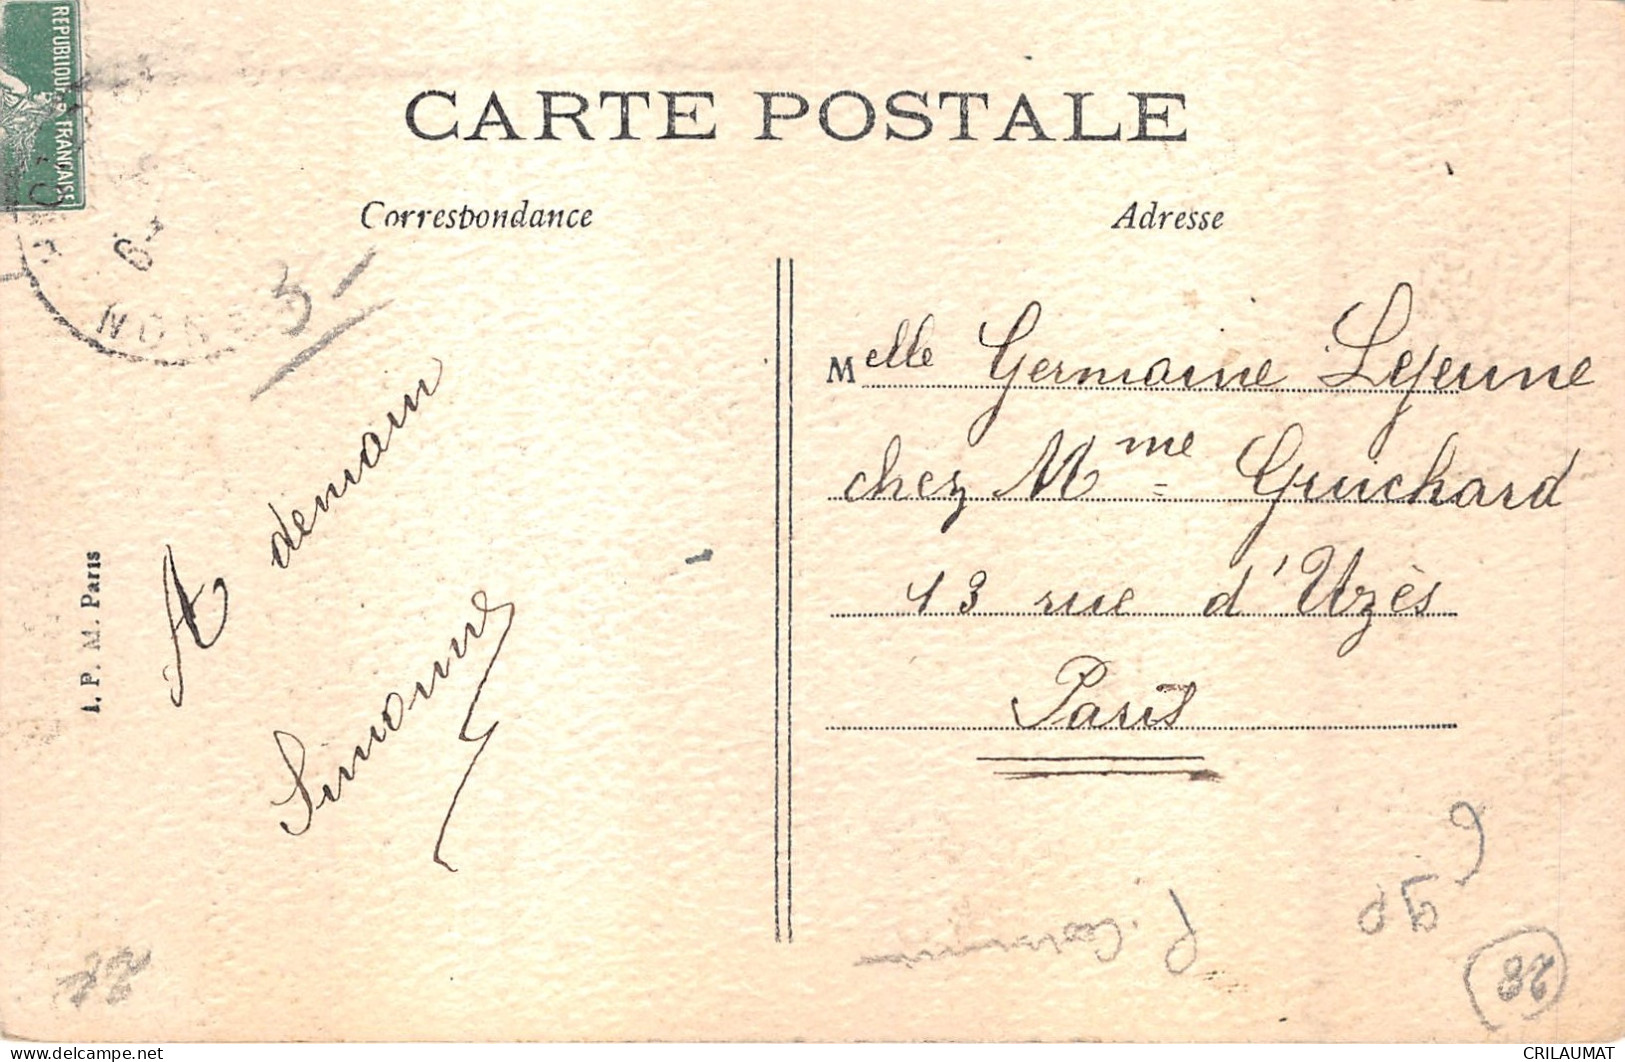 REPUBLIQUE FRANÇAISE
CARTE POSTALE
Correspondance
Adresse
3
A demain
Simonne
I. P. M. Paris
Melle Germaine Lejeune
chez Mme Guichard
13 rue d'Uzès
Paris
28
CRILAUMAT